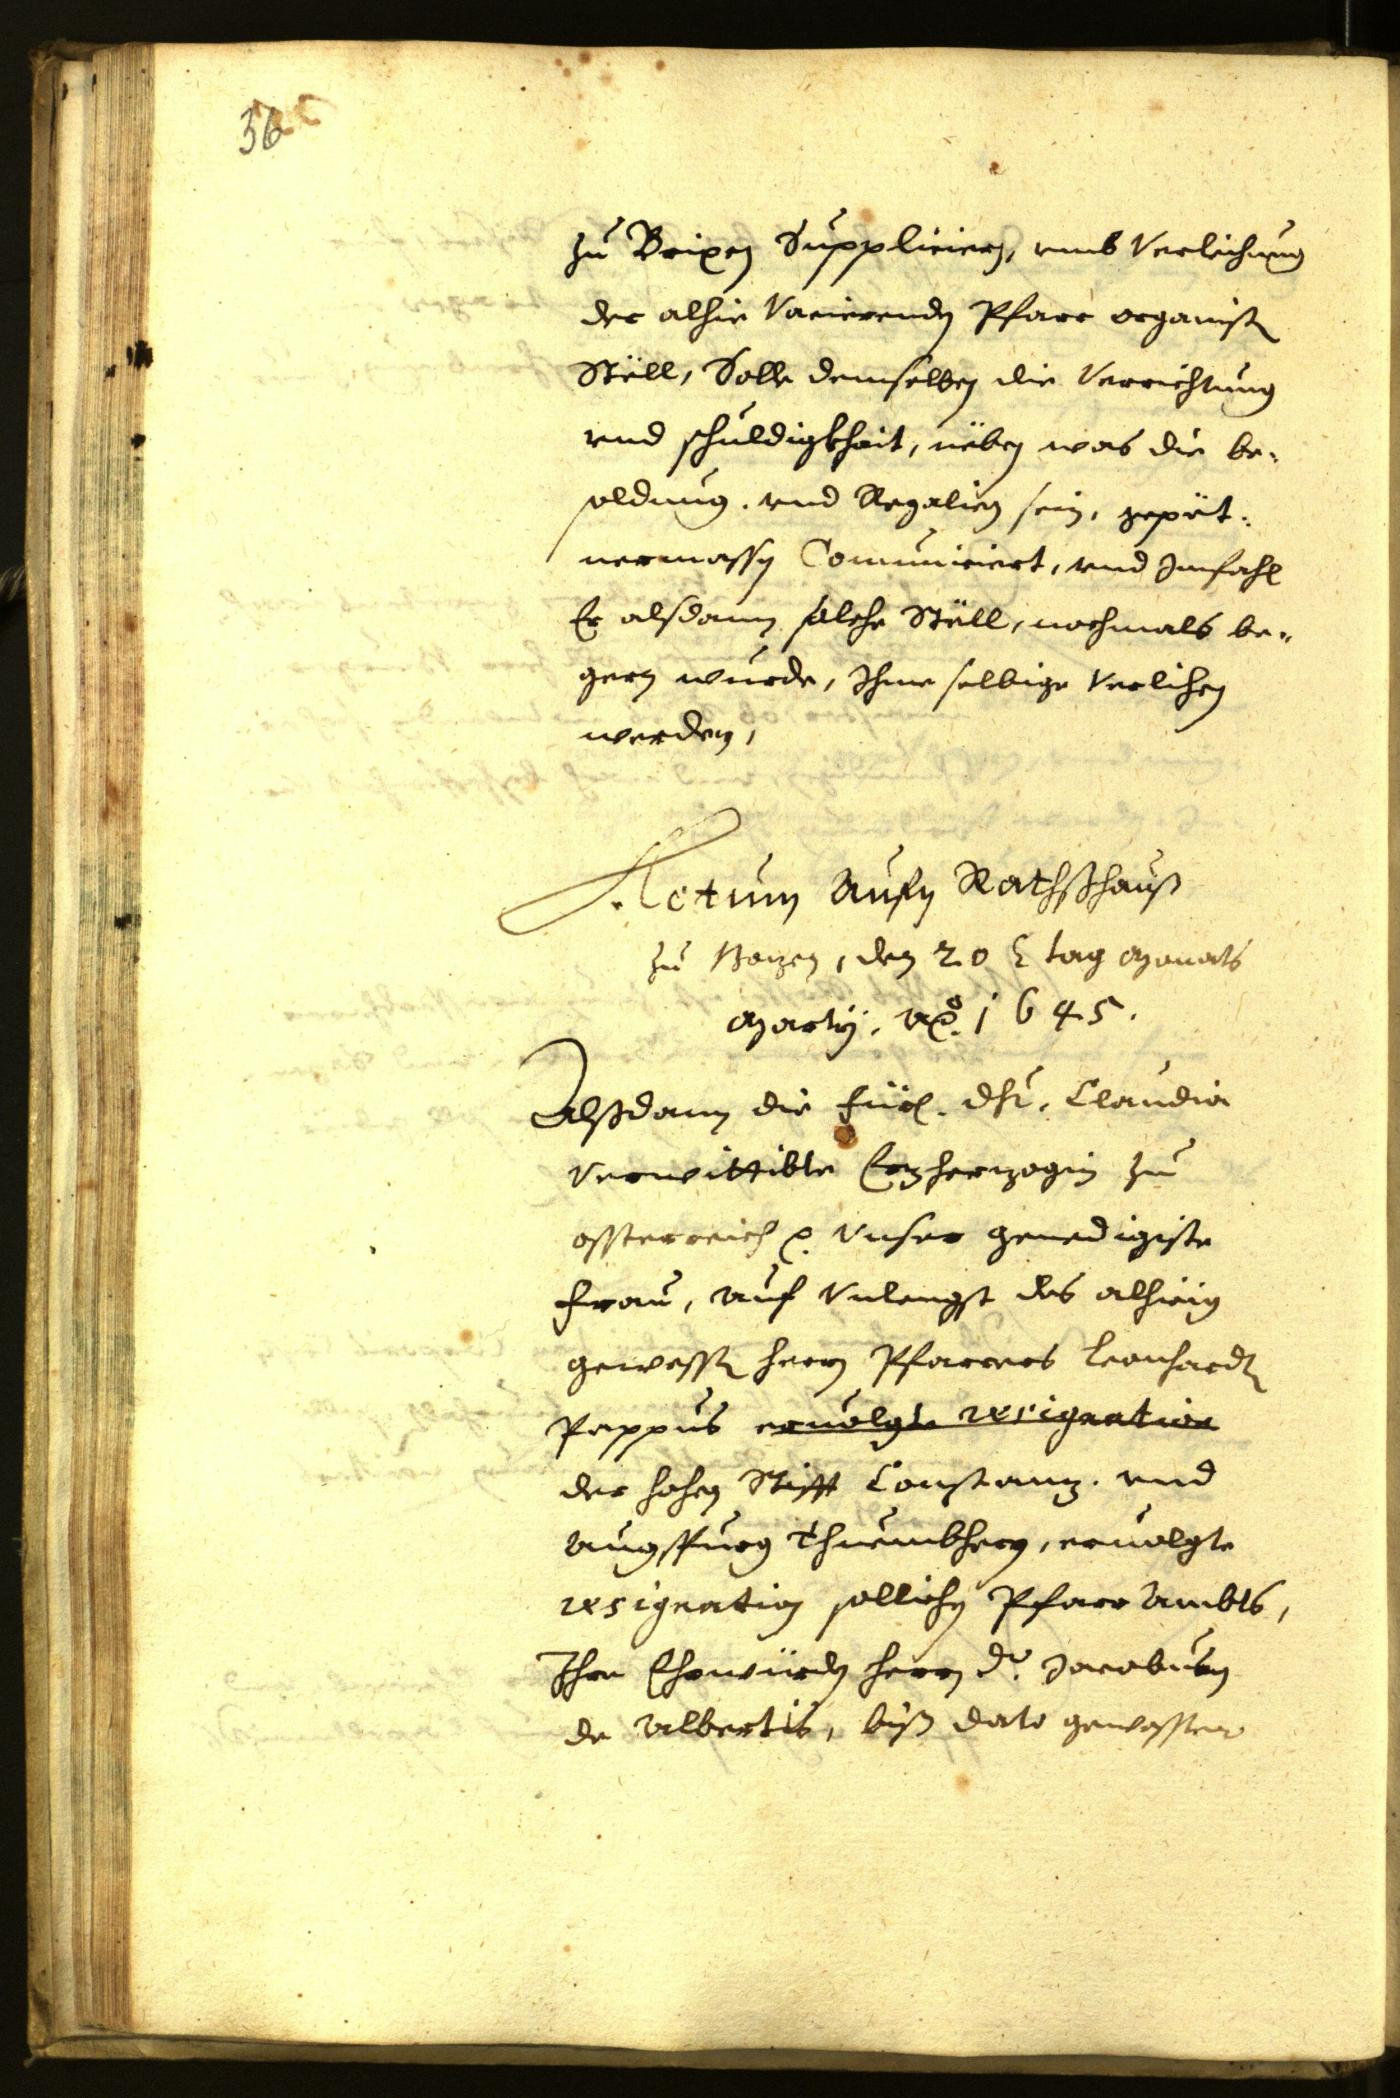 36
zu Brixen Supplicieren, umb Verleichung
der alhie Vacierenden Pfarr organisten
Stöll, Solle demselben die Verrichtung
vnd schuldigkheit, nëben was die be-
soldung. vnd Regalien sein, gepët-
nermassen Communiciert, vnd Imfahl
Er alsdann solche Stöll, nochmals be-
gern wurde, Ihme selbige Verlihen
werden,
Actum Aufm Rathßhauß
zu Bozen, den 20 tag Monats
Martij, A°. 1645.
Alßdann die Fürl. Dht. Claudia
Verwittibte Erzherzogin zu
össterreich Unser genedigiste
Frau, auf Vnlengst des alhieig
gewessten herrn Pfarrers Leonhardten
Pappus ervolgte resignation
der hohen Stifft Constannz. vnd
Augspurg Thuembherrn, ervolgte
resignation sollichen Pfarr Ambts,
Ihre Ehrwürden herrn Dr. Jacobum
de Albertis, biß dato gewessten